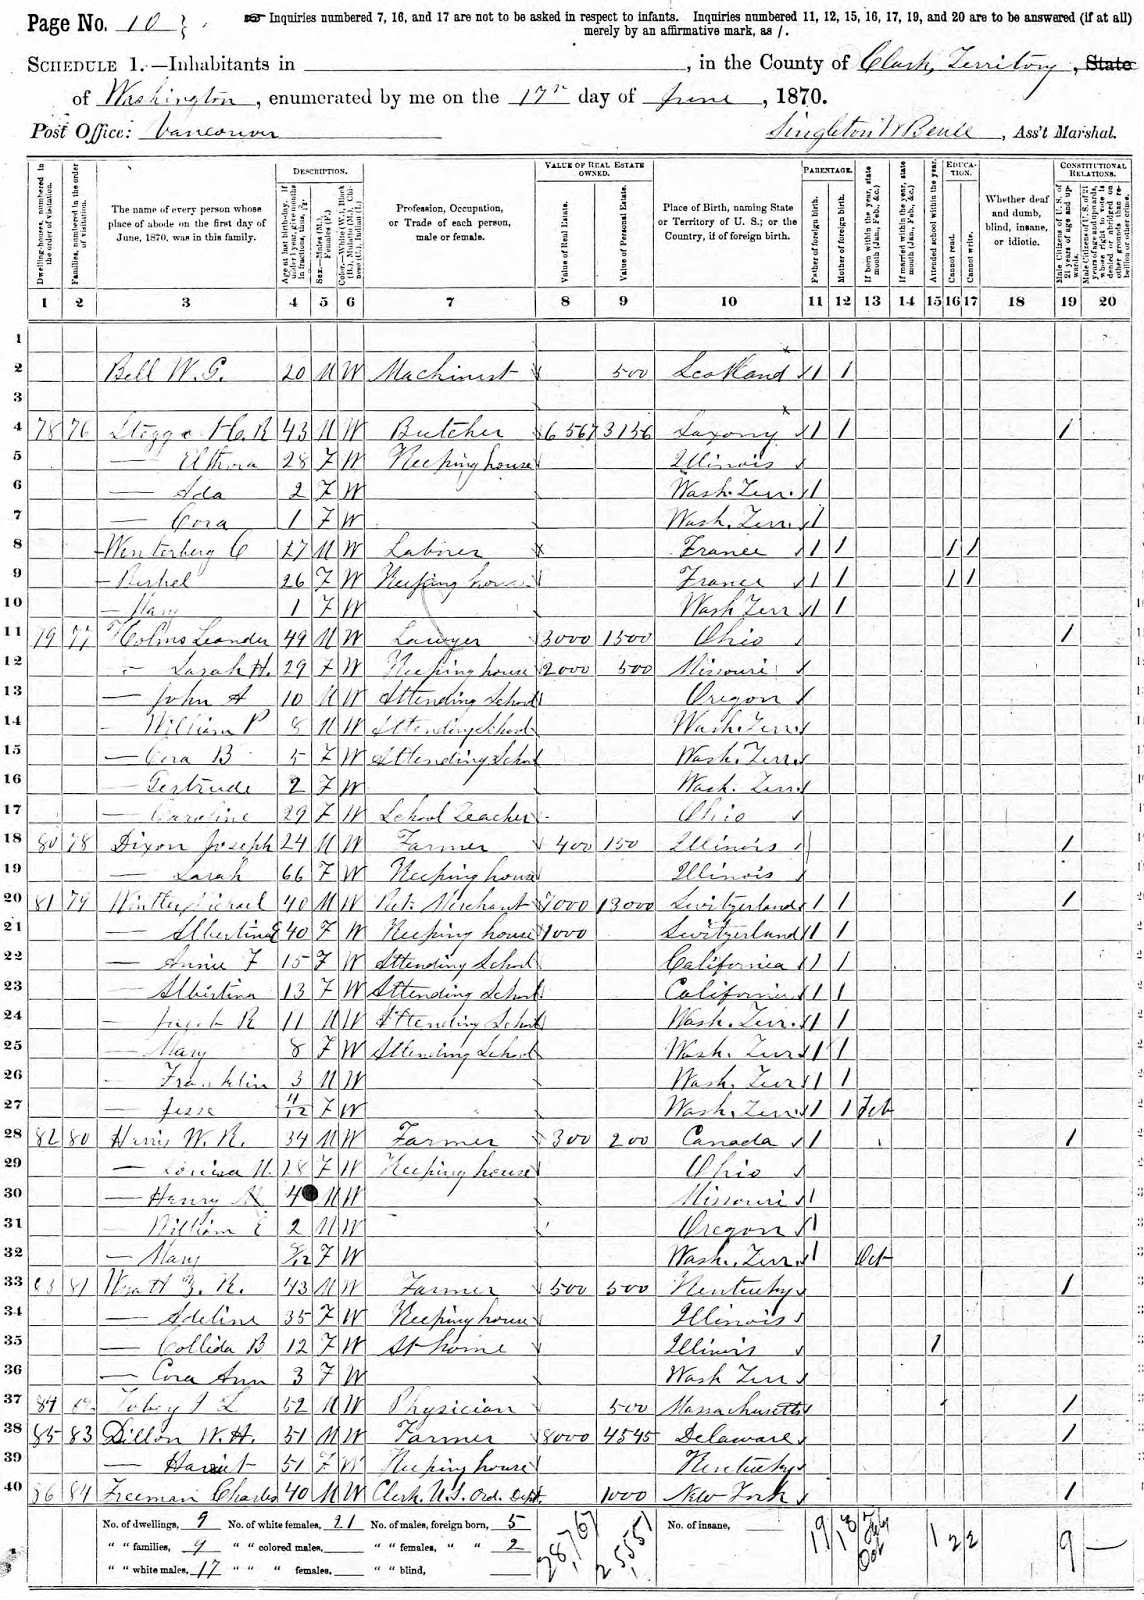 Page No. 10
☞ Inquiries numbered 7, 16, and 17 are not to be asked in respect to infants. Inquiries numbered 11, 12, 15, 16, 17, 19, and 20 are to be answered (if at all)
merely by an affirmative mark, as /.
SCHEDULE 1.—Inhabitants in , in the County of Clark, Territory, State
of Washington, enumerated by me on the 17th day of June, 1870.
Post Office: Vancouver Singleton W , Ass't Marshal.
Dwelling-houses, numbered in the order of visitation.
Families, numbered in the order of visitation.
The name of every person whose place of abode on the first day of June, 1870, was in this family.
DESCRIPTION.
Age at last birth-day. If under 1 year, give months in fractions, thus,
Sex.—Males (M.), Females (F.)
Color.—White (W.), Black (B.), Mulatto (M.), Chinese (C.), Indian (I.)
Profession, Occupation, or Trade of each person, male or female.
VALUE OF REAL ESTATE OWNED.
Value of Real Estate.
Value of Personal Estate.
Place of Birth, naming State or Territory of U. S.; or the Country, if of foreign birth.
PARENTAGE.
Father of foreign birth.
Mother of foreign birth.
If born within the year, state month (Jan., Feb., &c.)
If married within the year, state month (Jan., Feb., &c.)
Attended school within the year.
EDUCATION.
Cannot read.
Cannot write.
Whether deaf and dumb, blind, insane, or idiotic.
CONSTITUTIONAL RELATIONS.
Male Citizens of U. S. of 21 years of age and upwards.
Male Citizens of U. S. of 21 years of age and upwards, whose right to vote is denied or abridged on other grounds than rebellion or other crime.
1 2 3 4 5 6 7 8 9 10 11 12 13 14 15 16 17 18 19 20
1
2 Bell W. G. 20 M W Machinist 500 Scotland / /
3
4 78 76 H. R 43 M W Butcher 6567 3156 Saxony / / /
5 — 28 F W Keeping house Illinois
6 — Ada 2 F W Wash. Terr. /
7 — Cora 1 F W Wash. Terr. /
8 Winterberg C 27 M W Laborer France / / / /
9 — 26 F W Keeping house France / / / /
10 — Mary 1 F W Wash Terr / /
11 79 77 Holms Leander 49 M W Lawyer 3000 1500 Ohio /
12 — Sarah H. 29 F W Keeping house 2000 500 Missouri
13 — John A 10 M W Attending School Oregon
14 — William P 8 M W Attending School Wash. Terr.
15 — Cora B 5 F W Attending School Wash. Terr.
16 — Gertrude 2 F W Wash. Terr.
17 — Caroline 29 F W School Teacher Ohio
18 80 78 Dixon Joseph 24 M W Farmer 400 150 Illinois /
19 — Sarah 66 F W Keeping house Illinois
20 81 79 40 M W Ret. Merchant 7000 13000 Switzerland / / /
21 — Albertina 40 F W Keeping house 1000 Switzerland / /
22 — Annie F 15 F W Attending School California / /
23 — Albertina 13 F W Attending School California / /
24 — R 11 M W Attending School Wash. Terr. / /
25 — Mary 8 F W Attending School Wash. Terr / /
26 — Franklin 3 M W Wash. Terr / /
27 — Jesse F W Wash. Terr / / Feb
28 82 80 Harris W. R. 34 M W Farmer 300 200 Canada / /
29 — Louisa 28 F W Keeping house Ohio
30 — Henry 4 M W Missouri /
31 — William E 2 M W Oregon /
32 — Mary F W Wash. Terr. / Oct
33 83 81 Wyatt Z. R. 43 M W Farmer 500 500 Kentucky /
34 — Adeline 35 F W Keeping house Illinois
35 — Collida B 12 F W At home Illinois /
36 — Cora Ann 3 F W Wash Terr
37 84 Tobey 52 M W Physician 500 Massachusetts /
38 85 83 Dillon W. H. 51 M W Farmer 8000 4545 Delaware /
39 — Harriet 51 F W Keeping house Kentucky
40 86 84 Freeman Charles 40 M W Clerk. U.S. Ord. Dept. 1000 New York /
No. of dwellings, 9 No. of white females, 21 No. of males, foreign born, 5 No. of insane,
" " families, 9 " " colored males, " " females, " " 2
" " white males, 17 " " " females, " " blind,
28,767 25,551 19 18 Feb Oct 1 2 2 9 —